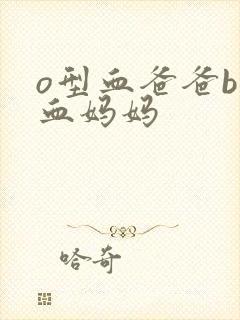 o型血爸爸b
血妈妈
哈奇